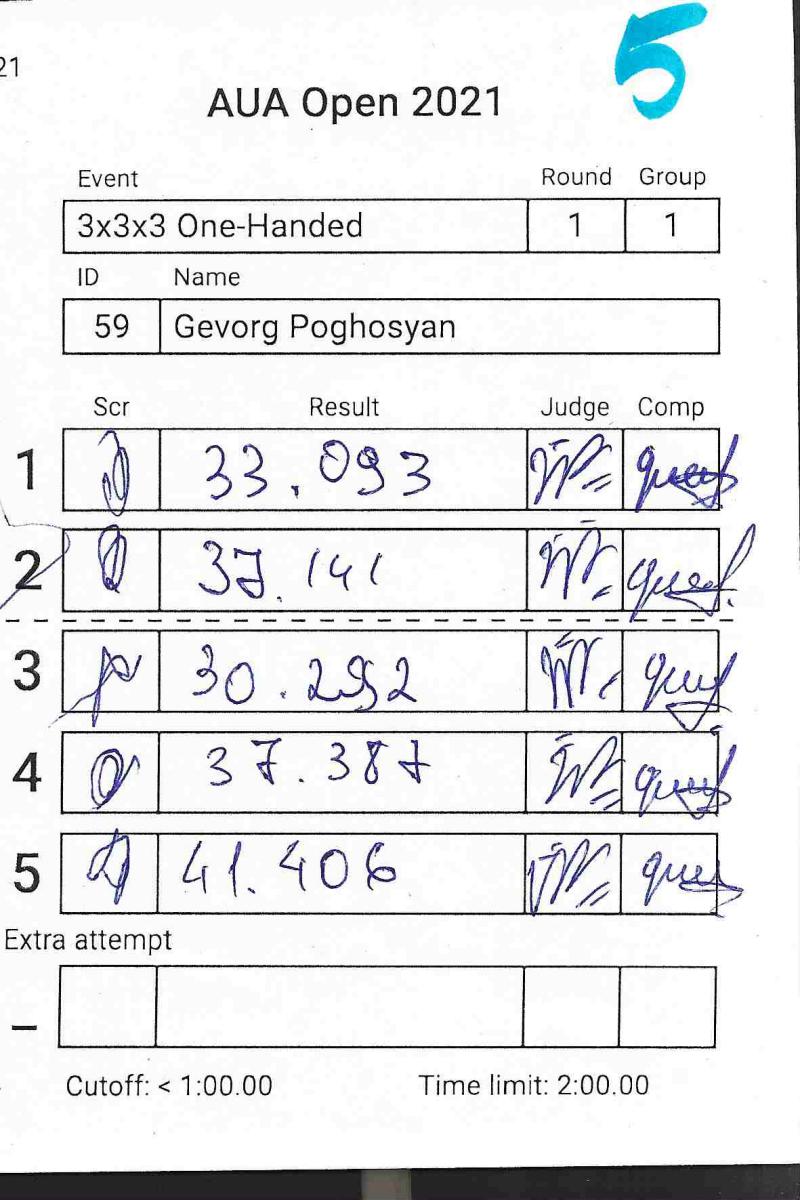 21
5
AUA Open 2021
Event Round Group
3x3x3 One-Handed 1 1
ID Name
59 Gevorg Poghosyan
Scr Result Judge Comp
1 33.093
2 37.141
3 30.292
4 37.387
5 41.406
Extra attempt
_
Cutoff: < 1:00.00 Time limit: 2:00.00